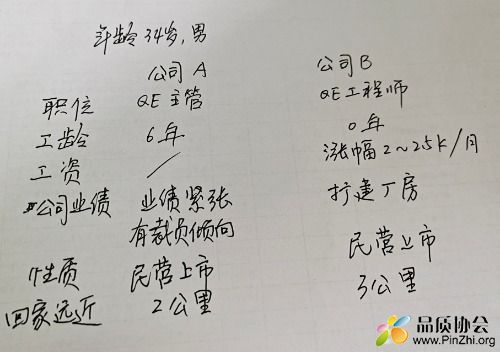 年龄 34岁, 男
公司 A 公司 B
职位 QE 主管 QE 工程师
工龄 6年 0年
工资 / 涨幅 2~2.5k/月
公司业绩 业绩紧张 扩建厂房
有裁员倾向
性质 民营上市 民营上市
回家远近 2公里 3公里
品质协会
www.PinZhi.org